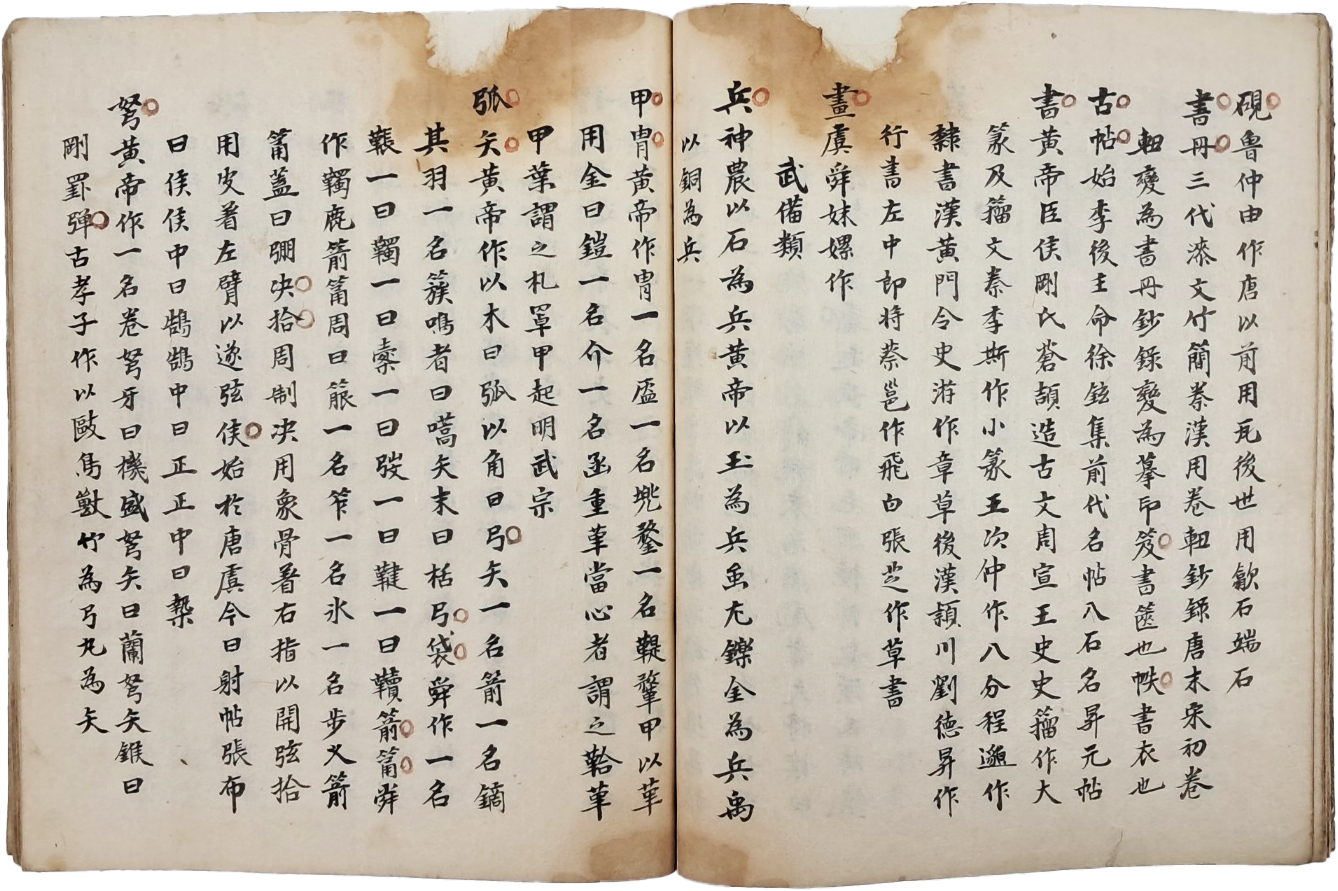 硯魯仲由作唐以前用瓦後世用歙石端石
書冊三代漆文竹簡秦漢用卷軸鈔錄唐末宋初卷
軸變為書冊鈔錄變為摹印笈書篋也帙書衣也
古帖始李後主命徐鉉集前代名帖入石名昇元帖
書黃帝臣侯剛氏蒼頡造古文周宣王史史籀作大
篆及籀文秦李斯作小篆王次仲作八分程邈作
隸書漢黃門令史游作章草後漢穎川劉德昇作
行書左中郎將蔡邕作飛白張芝作草書
畫虞舜妹嫘作
武備類
兵神農以石為兵黃帝以玉為兵蚩尤鑠金為兵禹
以銅為兵
甲冑黃帝作冑一名盔一名兠鍪一名鞮鞪甲以革
用金曰鎧一名介一名函重革當心者謂之鞈革
甲葉謂之札罩甲起明武宗
弧矢黃帝作以木曰弧以角曰弓矢一名箭一名鏑
其羽一名簇鳴者曰嚆矢末曰栝弓袋舜作一名
韔一曰韣一曰櫜一曰弢一曰鞬一曰韇箭箙舜
作韣鹿箭箙周曰箙一名笮一名氷一名步义箭
箙蓋曰弸决拾周制决用象骨著右指以開弦拾
用皮著左臂以遂弦侯始於唐虞今曰射帖張布
曰侯侯中曰鵠鵠中曰正正中曰槷
弩黃帝作一名卷弩牙曰機盛弩矢曰蘭弩矢錐曰
剛罫彈古孝子作以敺鳥獸竹為弓丸為矢